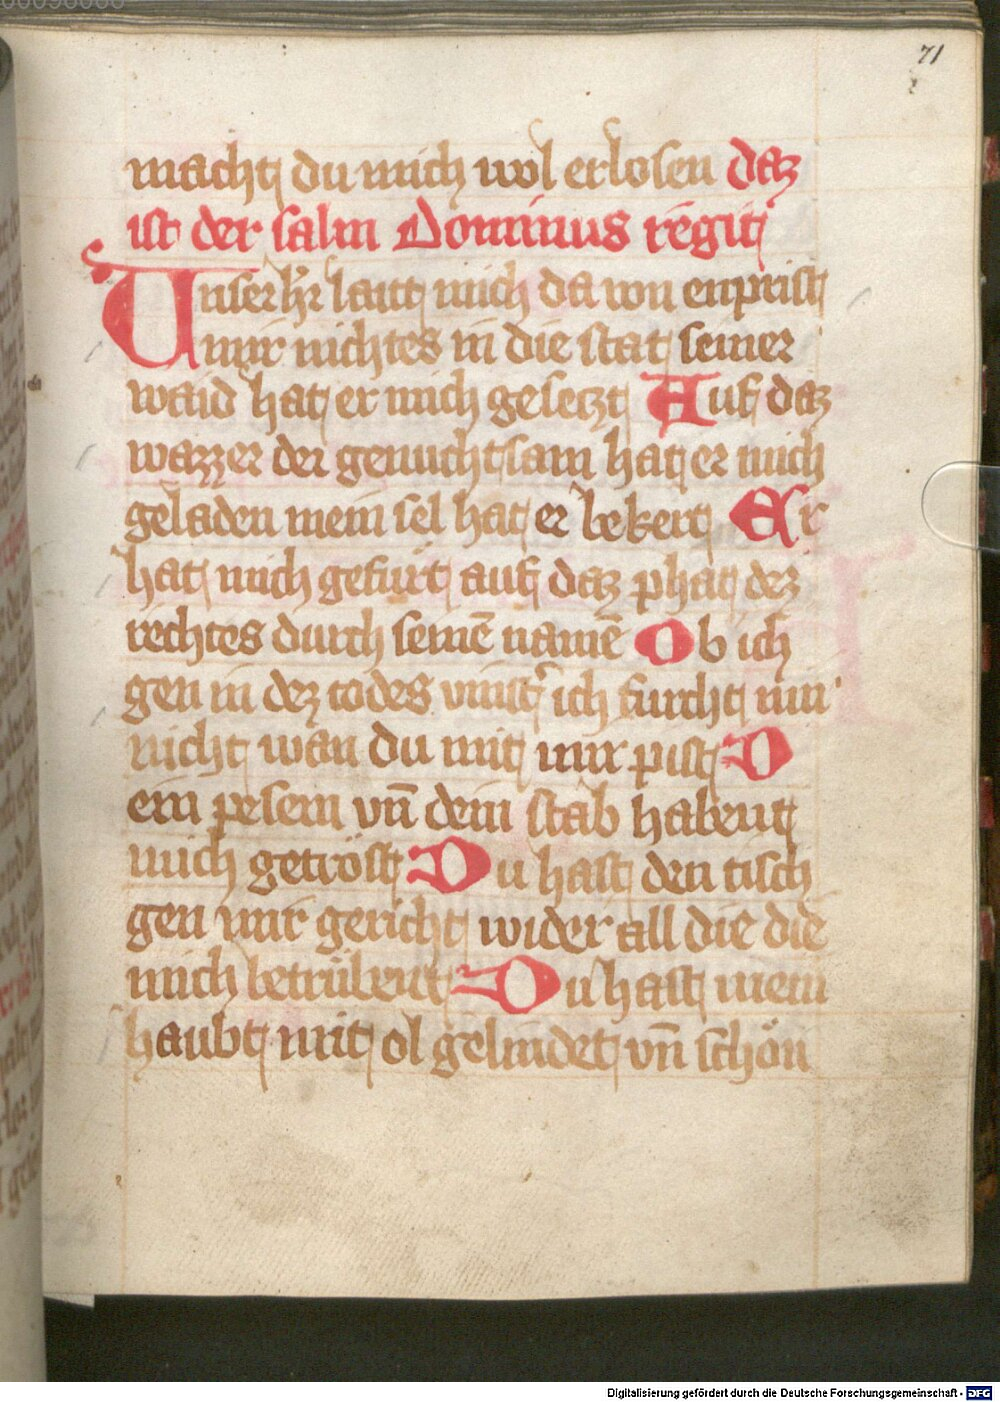 71
macht du mich wol erlosen daz
ist der salm Dominus regit
Unser hr laitt mich da von enprist
mir nichtes in die stat seiner
waid hat er mich gesetzt Auf daz
wazzer der genuchtsam hat er mich
geladen mein sel hat er bekert Er
hat mich gefurt auf daz phat dez
rechtes durch seinē namē Ob ich
gen in dez todes vinst' ich furcht mir
nicht wan du mit mir pist D
ein pesem vn̄ dein stab habent
mich getröst Du hast den tisch
gen mir gericht wider all die die
mich betrübent Du hast mein
haubt mit öl gelindet vn̄ schön
Digitalisierung gefördert durch die Deutsche Forschungsgemeinschaft - DFG